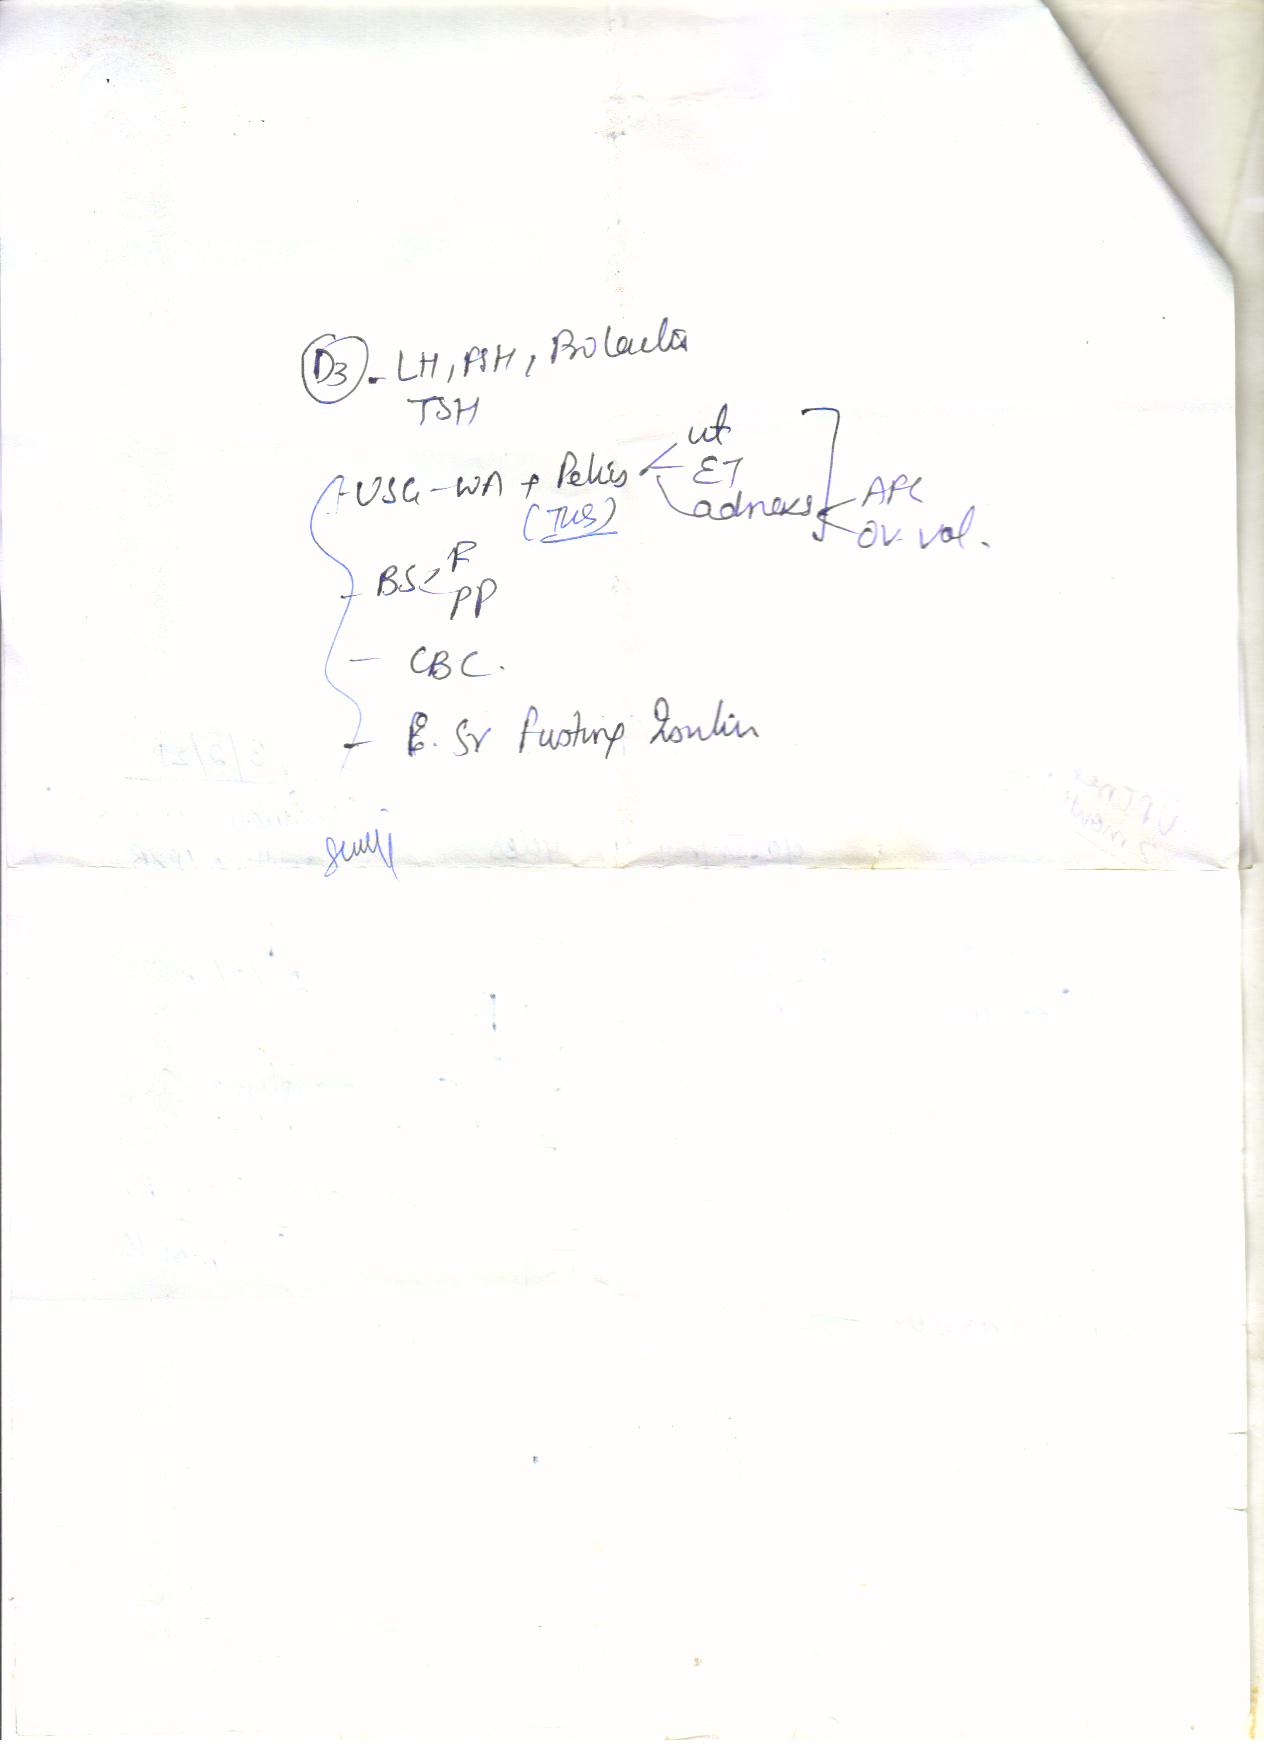 D3 - LH, FSH, Prolactin
TSH
- USG - WA + Pelvis < ut
ET
adnexa < AFC
ov. vol.
(TVS)
- BS < F
PP
- CBC.
- Sr fasting Insulin